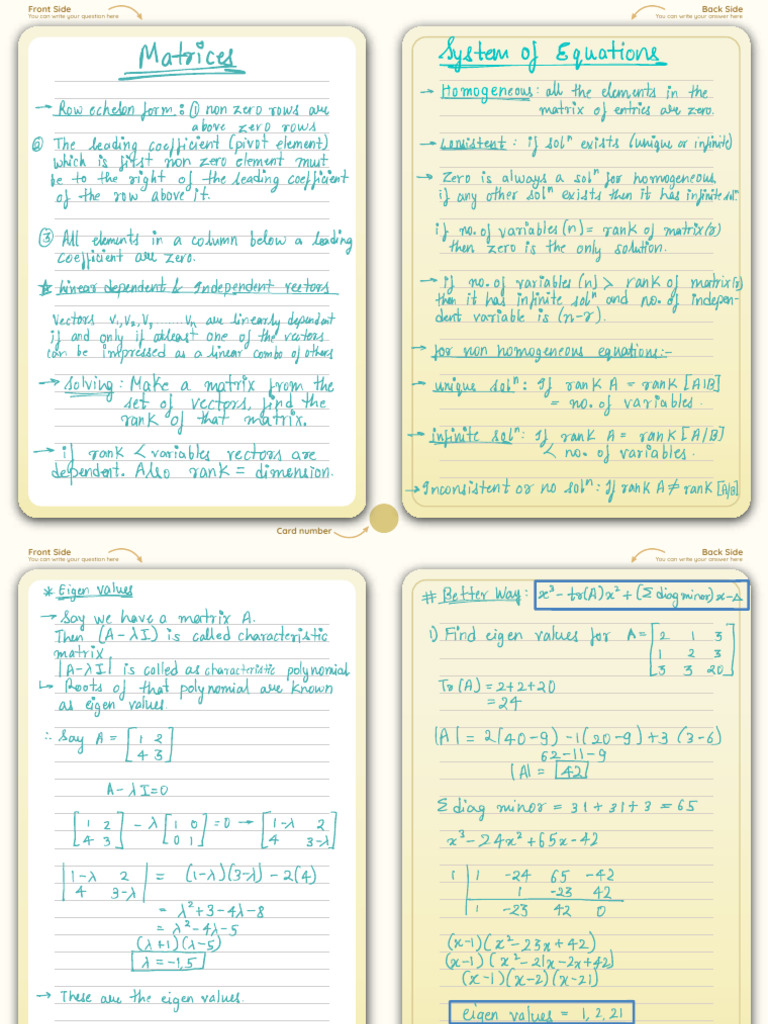 Front Side
You can write your question here
Matrices
→ Row echelon form: ① non zero rows are
above zero rows
② The leading coefficient (pivot element)
which is first non zero element must
be to the right of the leading coefficient
of the row above it.
③ All elements in a column below a leading
coefficient are zero.
* Linear dependent & Independent vectors
Vectors V₁,V₂,V₃ ...... Vₙ are linearly dependent
if and only if atleast one of the vectors
can be impressed as a linear combo of others
→ Solving: Make a matrix from the
set of vectors, find the
rank of that matrix.
→ if rank < variables vectors are
dependent. Also rank = dimension.
Back Side
You can write your answer here
System of Equations
→ Homogeneous: all the elements in the
matrix of entries are zero.
→ Consistent: if solⁿ exists (unique or infinite)
→ Zero is always a solⁿ for homogeneous,
if any other solⁿ exists then it has infinite solⁿ
if no. of variables (n) = rank of matrix(r)
then zero is the only solution.
→ if no. of variables (n) > rank of matrix(r)
then it has infinite solⁿ and no. of indepen-
dent variable is (n-r).
→ for non homogeneous equations:-
→ unique solⁿ: If rank A = rank [A|B]
= no. of variables.
→ infinite solⁿ: If rank A = rank [A/B]
< no. of variables.
→ Inconsistent or no solⁿ: If rank A ≠ rank [A/B]
Card number
Front Side
You can write your question here
* Eigen values
→ Say we have a matrix A.
Then (A-λI) is called characteristic
matrix.
|A-λI| is called as characteristic polynomial
↳ Roots of that polynomial are known
as eigen values.
∴ Say A = [1 2
4 3]
A-λI=0
[1 2 4 3] - λ[1 0 0 1] = 0 → [1-λ 2 4 3-λ]
|1-λ 2 4 3-λ| = (1-λ)(3-λ) - 2(4)
= λ²+3-4λ-8
= λ²-4λ-5
(λ+1)(λ-5)
λ = -1,5
→ These are the eigen values.
Back Side
You can write your answer here
# Better Way: x³-tr(A)x²+(Σ diag minor)x-Δ
1) Find eigen values for A = [2 1 3
1 2 3
3 3 20]
Tr(A) = 2+2+20
= 24
|A| = 2(40-9) -1(20-9) +3 (3-6)
62-11-9
|A| = 42
Σ diag minor = 31+31+3 = 65
x³-24x²+65x-42
1 | 1 -24 65 -42
1 -23 42
1 -23 42 0
(x-1)(x²-23x+42)
(x-1)(x²-21x-2x+42)
(x-1)(x-2)(x-21)
eigen values = 1, 2, 21